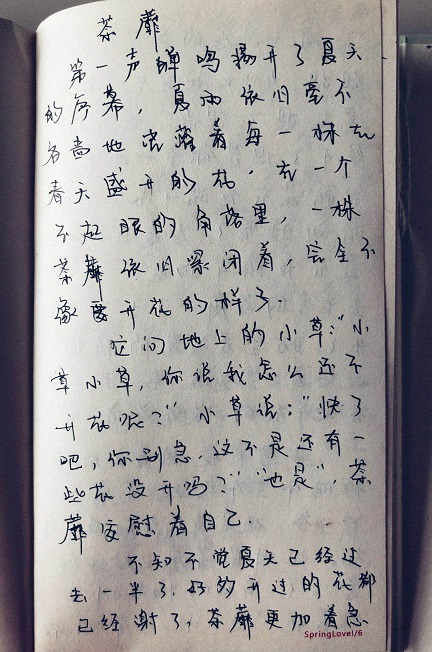 荼蘼
第一声蝉鸣揭开了夏天
的序幕，夏雨依旧毫不
吝啬地滋润着每一株在
春天盛开的花，在一个
不起眼的角落里，一株
荼蘼依旧紧闭着，完全不
像要开花的样子.
它问地上的小草："小
草小草，你说我怎么还不
开花呢？"小草说："快了
吧，你别急，这不是还有一
些花没开吗？""也是"，荼
蘼安慰着自己.
不知不觉夏天已经过
去一半了，好多开过的花都
已经谢了，荼蘼更加着急
SpringLove!/6